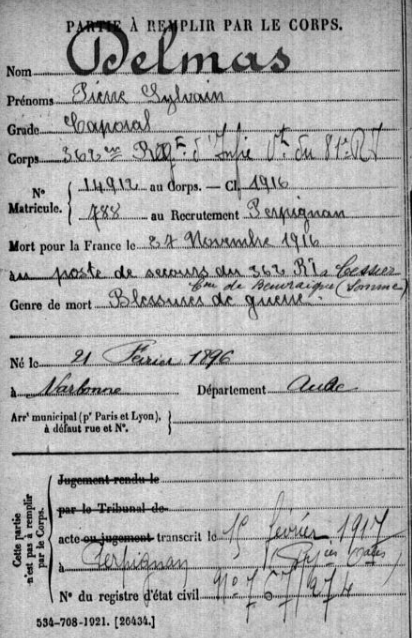 PARTIE À REMPLIR PAR LE CORPS.
Nom Delmas
Prénoms Pierre Sylvain
Grade Caporal
Corps 362ème Reg. d'Infie Vt. du 81e RI
N° Matricule. { 14912 au Corps. — Cl. 1916
788 au Recrutement Perpignan
Mort pour la France le 27 Novembre 1916
au poste de secours du 362 RI
Cne de (Somme)
Genre de mort Blessures de guerre
Né le 21 Février 1896
à Narbonne Département Aude
Arrt municipal (pr Paris et Lyon),
à défaut rue et N°.
Cette partie n'est pas à remplir par le Corps.
Jugement rendu le
par le Tribunal de
acte ou jugement transcrit le 1er février 1917
à Perpignan
N° du registre d'état civil
534-708-1921. [26434.]